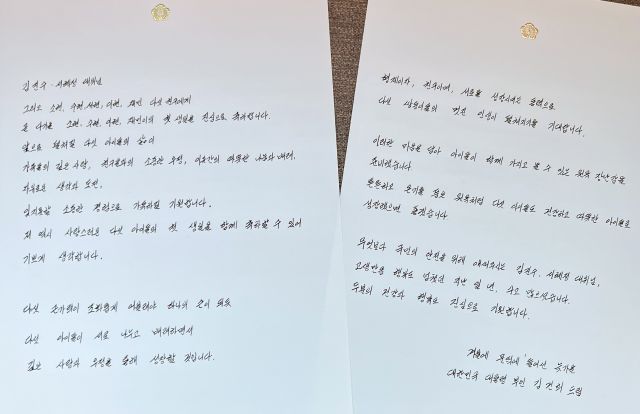 김진수·서혜정 대위님
그리고 소현, 수현, 서현, 이현, 재민 다섯 천사에게
곧 다가올 소현, 수현, 서현, 이현, 재민이의 첫 생일을 진심으로 축하합니다.
앞으로 펼쳐질 다섯 아이들의 삶이
가족들의 깊은 사랑, 친구들과의 소중한 우정, 이웃간의 따뜻한 나눔과 배려,
자유로운 생각과 도전,
잊지못할 소중한 경험으로 가득하길 기원합니다.
저 역시 사랑스러운 다섯 아이들의 첫 생일을 함께 축하할 수 있어
기쁘게 생각합니다.
다섯 손가락이 조화롭게 어울려야 하나의 손이 되듯
다섯 아이들이 서로 나누고 배려하면서
깊은 사랑과 우정을 통해 성장할 것입니다.
형제이자, 친구이며, 서로를 성장시키는 동력으로
다섯 쌍둥이들의 멋진 인생이 펼쳐지기를 기대합니다.
이러한 마음을 담아 아이들이 함께 가지고 놀 수 있는 원목 장난감을
준비했습니다.
튼튼하고 온기를 품은 원목처럼 다섯 아이들도 건강하고 따뜻한 아이들로
성장했으면 좋겠습니다.
무엇보다 국민의 안전을 위해 애써주시는 김진수·서혜정 대위님,
고생만큼 행복도 넘쳤을 지난 일 년, 수고 많으셨습니다.
두분의 건강과 행복도 진심으로 기원합니다.
겨울에 문턱에 들어선 늦가을
대한민국 대통령 부인 김건희 드림